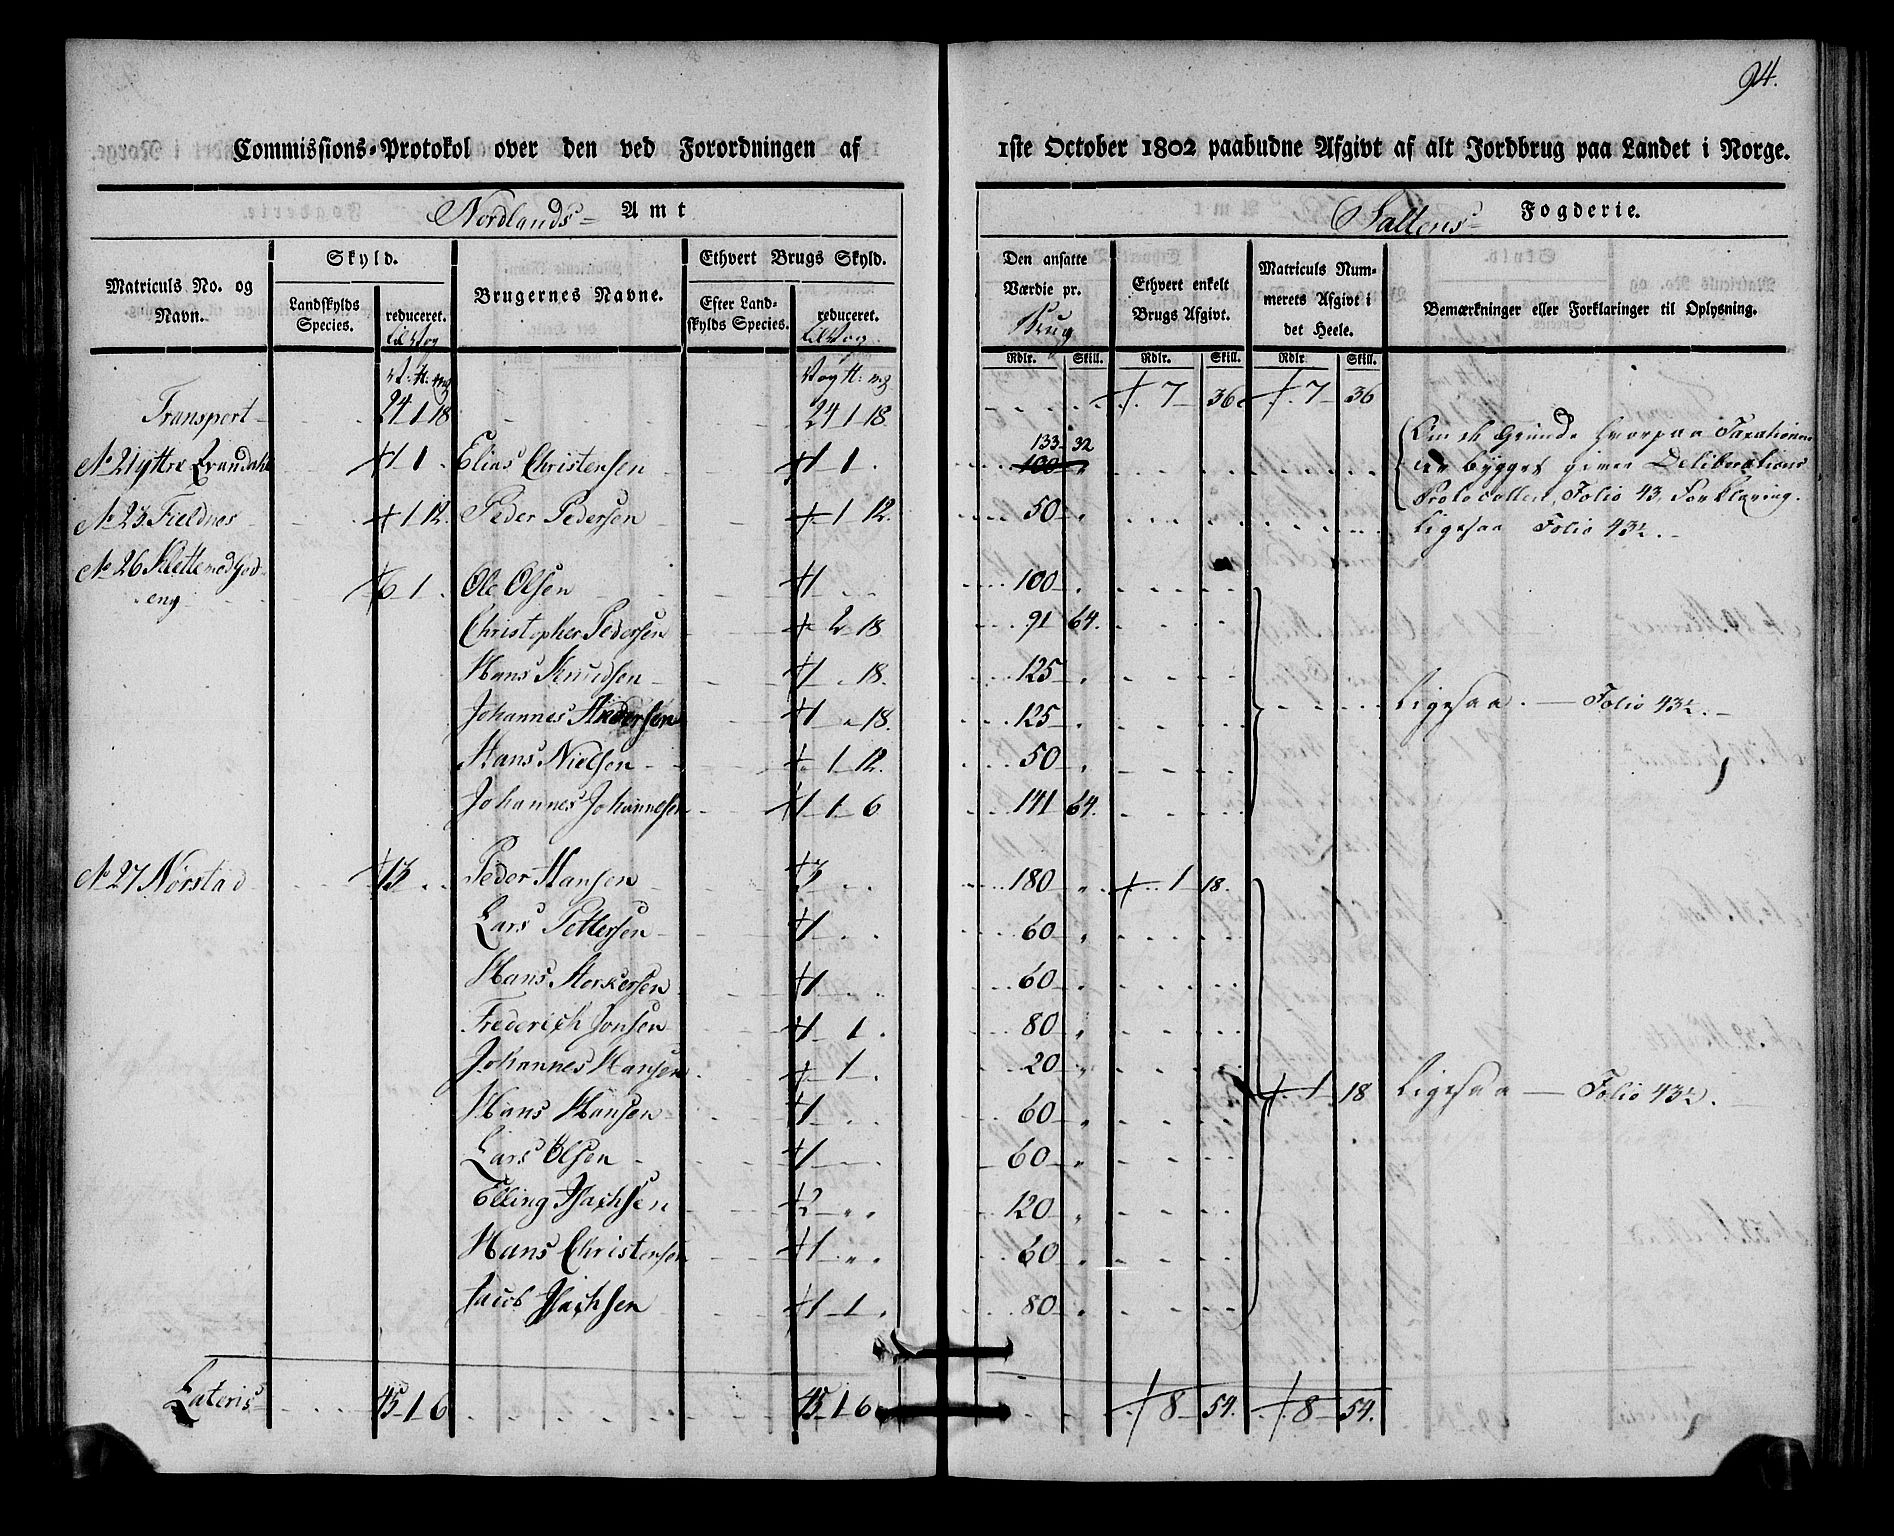 94.
Commissions-Protokol over den ved Forordningen af 1ste October 1802 paabudne Afgivt af alt Jordbrug paa Landet i Norge.
Nordlands Amt Saltens Fogderie.
Matriculs No. og Navn.
Skyld.
Landskylds Species.
reduceret.
til Vog
Brugernes Navne.
Ethvert Brugs Skyld.
Efter Landskylds Species.
reduceret.
til Vog
Den ansatte Værdie pr. Brug
Ethvert enkelt Brugs Afgivt.
Matriculs Nummerets Afgivt i det Heele.
Bemærkninger eller Forklaringer til Oplysning.
Rdlr. Skill. Rdlr. Skill. Rdlr Skill.
V. ℔. mg Vog ℔. mg
Transport 24 1 18 24 1 18. 7 36. 7 36
No 21 yttre Evandahl 1 1 Elias Christensen 1 1. 133 32
100 Om de Grunde hvorpaa Taxationen
er bygget giver Deliberations
Protocollen, Folio 43, Forklaring.
No 23 Fieldnes 1 12. Peder Pedersen 1 12. 50 Ligesaa Folio 43½.
No 26 Klette med God-
eng 6 1. Ole Olsen 1 100
Christopher Pedersen 2 18 91 64.
Hans Knudsen 1 18. 125
Johannes Andersen 1 18. 125 Ligesaa. — Folio 43½.
Hans Nielsen 1 12. 50
Johannes Johannesen 1 1 6 141 64.
No 27 Nørstad 13 Peder Hansen 3 180 1 18.
Lars Pettersen 1 60
Hans Storkersen 1 60
Frederich Jonsen 1 1. 80
Johannes Hansen 1. 20
Hans Hansen 1 60 1 18 Ligesaa — Folio 43½.
Lars Olsen 1 60
Elling Isachsen 2 120
Hans Christensen 1 60
Jacob Isachsen 1 1. 80
Lateris 45 1 6 45 1 6 8 54. 8 54.